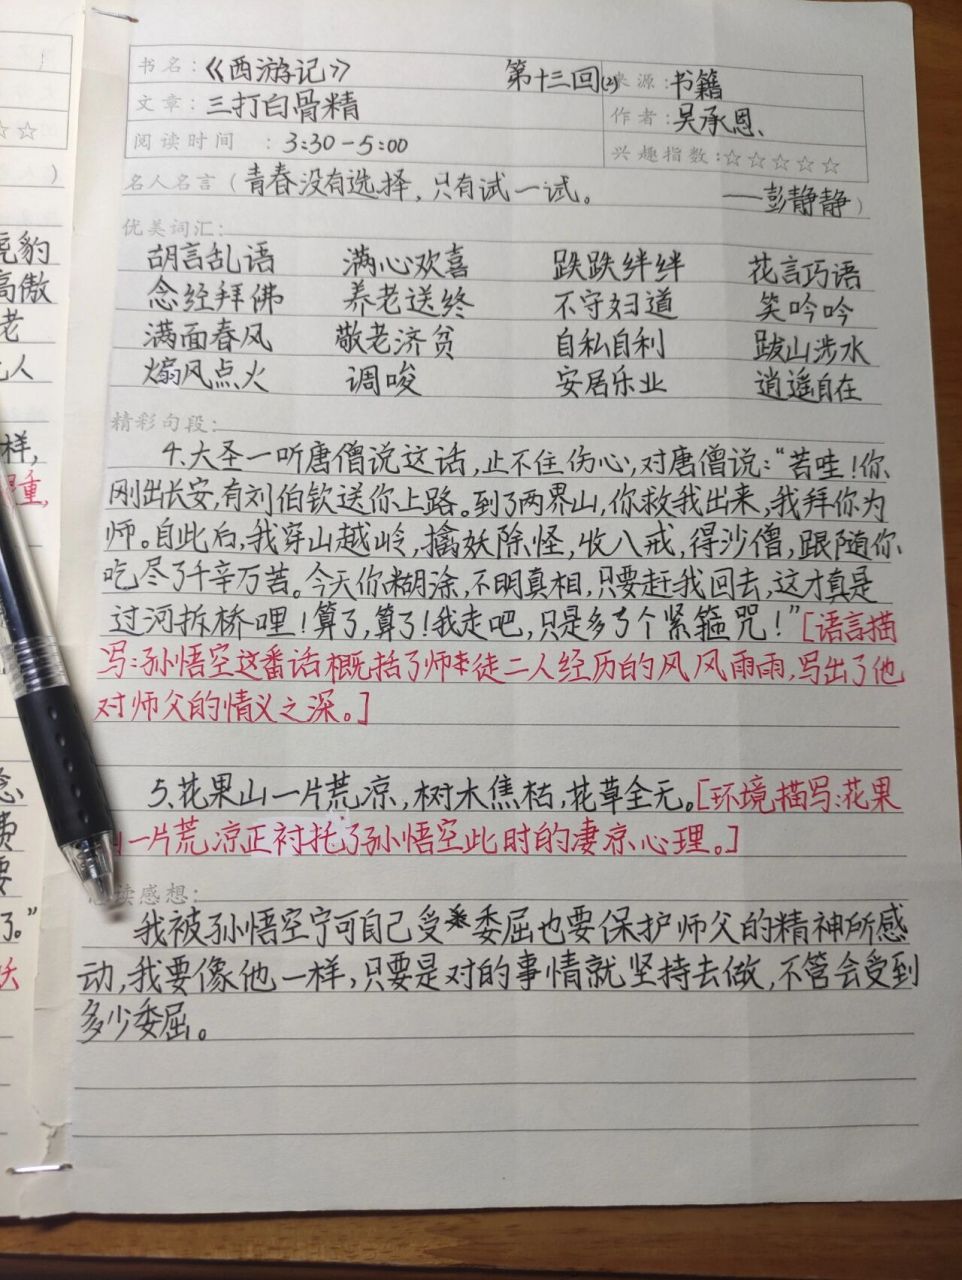 书名：《西游记》 第十三回(2) 来源：书籍
文章：三打白骨精 作者：吴承恩、
阅读时间：3:30-5:00 兴趣指数：☆☆☆☆☆
名人名言（青春没有选择，只有试一试。 ——彭静静）
优美词汇：
胡言乱语 满心欢喜 跌跌绊绊 花言巧语
念经拜佛 养老送终 不守妇道 笑吟吟
满面春风 敬老济贫 自私自利 跋山涉水
煽风点火 调唆 安居乐业 逍遥自在
精彩句段：
4、大圣一听唐僧说这话，止不住伤心，对唐僧说：“苦哇！你
刚出长安，有刘伯钦送你上路。到了两界山，你救我出来，我拜你为
师。自此后，我穿山越岭，擒妖除怪，收八戒，得沙僧，跟随你
吃尽了千辛万苦。今天你糊涂，不明真相，只要赶我回去，这才真是
过河拆桥哩！算了，算了！我走吧，只是多了个紧箍咒！”[语言描
写：孙悟空这番话概括了师徒二人经历的风风雨雨，写出了他
对师父的情义之深。]
5、花果山一片荒凉，树木焦枯，花草全无。[环境描写：花果
山一片荒凉正衬托了孙悟空此时的凄凉心理。]
读感想：
我被孙悟空宁可自己受委屈也要保护师父的精神所感
动，我要像他一样，只要是对的事情就坚持去做，不管会受到
多少委屈。
☆☆
）
豹
高傲
老
人
样，
重，
费
要
了。”
妖